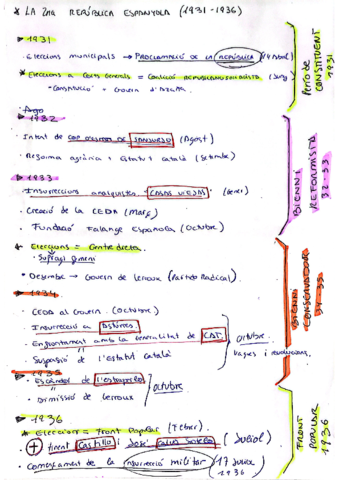 * LA 2na REPÚBLICA ESPANYOLA (1931-1936)
→ 1931
· Eleccions municipals → PROCLAMACIÓ DE LA REPÚBLICA (14 Abril)
* Eleccions a Corts Generals = Coalició REPUBLICANOSOCIALISTA (Juny)
- Constitució - Govern d'AZAÑA.
Període CONSTITUENT 1931
→ 1932
· Intent de COP MILITAR DE SANJURJO (Agost)
· Reforma agrària i Estatut Català (Setembre)
→ 1933
· Insurreccions anarquistes. CASAS VIEJAS (Gener)
· Creació de la CEDA (Març)
· Fundació Falange Española (Octubre)
BIENNI REFORMISTA 32-33
* Eleccions = Centre dreta.
→ Sufragi femení
· Desembre → Govern de Lerroux (Partido Radical).
→ 1934
· CEDA al Govern. (Octubre)
· Insurrecció a Astúries.
· Enfrontament amb la Generalitat de CAT.
· Suspensió de l'Estatut Català
octubre.
Vagues i revolucions.
→ 1935
· Escàndol de l'estraperlo
· Dimissió de Lerroux
octubre
BIENNI CONSERVADOR
→ 1936
* Eleccions = Front Popular (Febrer).
· + tinent Castillo i José Calvo Sotelo (Juliol)
· Començament de la insurrecció militar (17 Juliol 1936)
FRONT POPULAR 1936